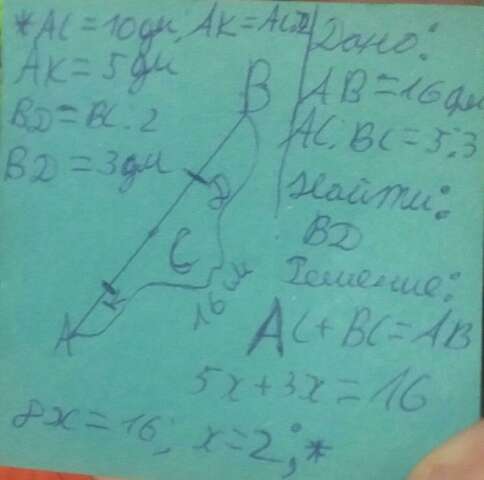 *AC = 10дм, AK = AC:2
AK = 5дм
BD = BC:2
BD = 3дм
B
D
C
K
A
16дм
Дано:
AB = 16дм
AC:BC = 5:3
Найти:
BD
Решение:
AC + BC = AB
5x + 3x = 16
8x = 16; x = 2; *